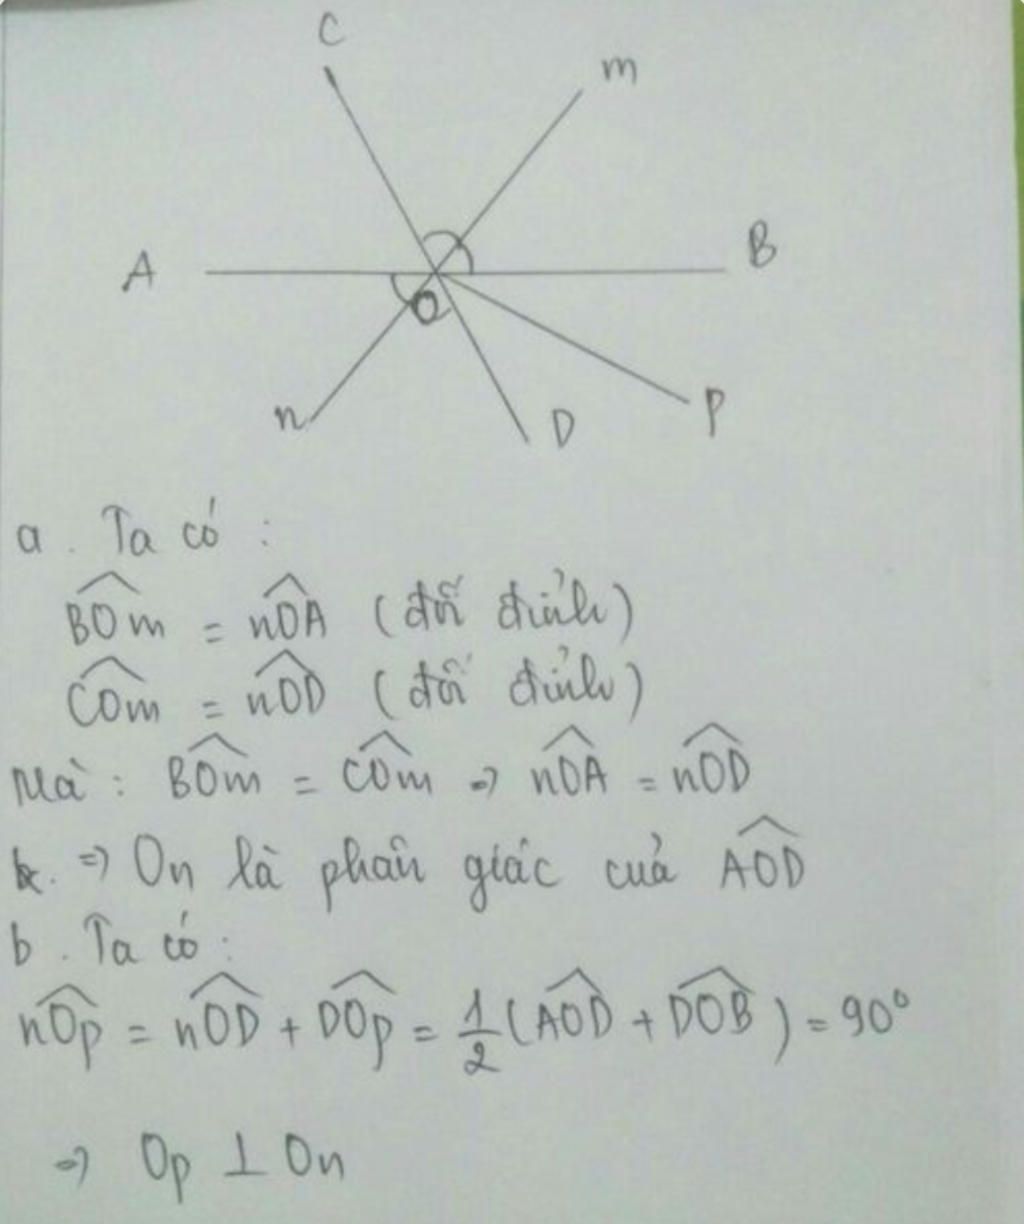 C
m
A
B
O
n
D
p
a. Ta có :
BOm = nOA (đối đỉnh)
COm = nOD (đối đỉnh)
Mà : BOm = COm => nOA = nOD
=> On là phân giác cuả AOD
b. Ta có :
nOp = nOD + DOp = 1/2 (AOD + DOB) = 90°
=> Op ⊥ On